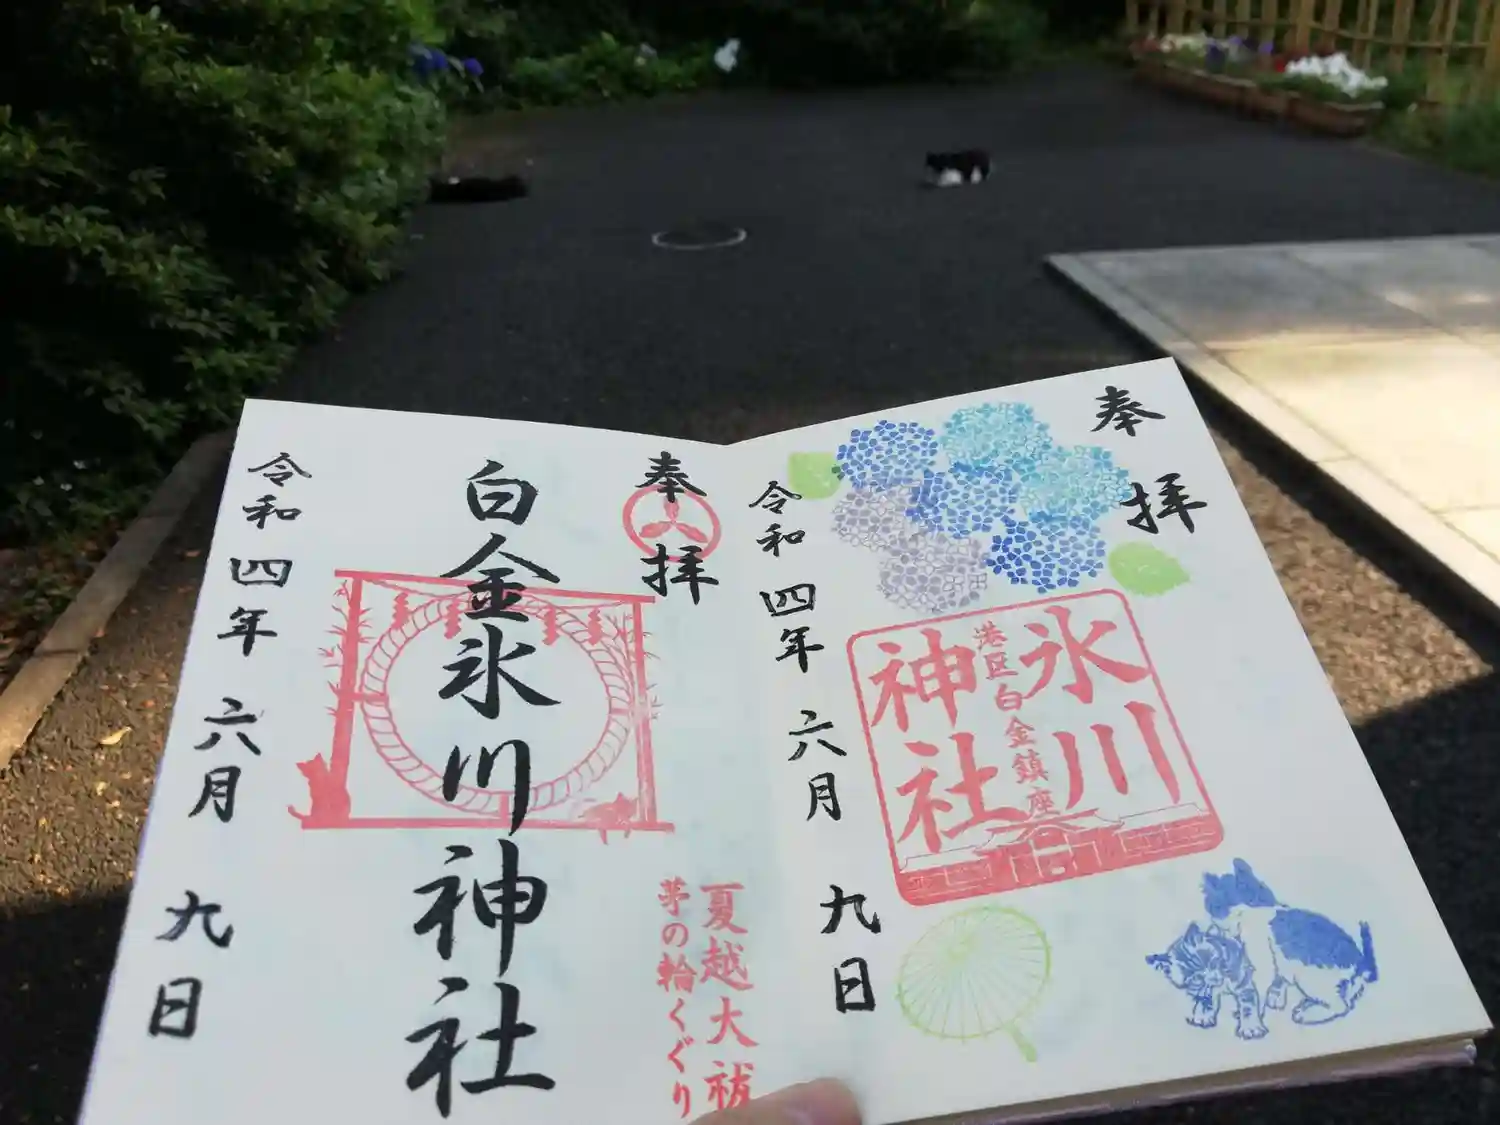 奉拝
氷川
神社
港区白金鎮座
令和四年六月九日
奉拝
夏越大祓
茅の輪くぐり
白金氷川神社
令和四年六月九日